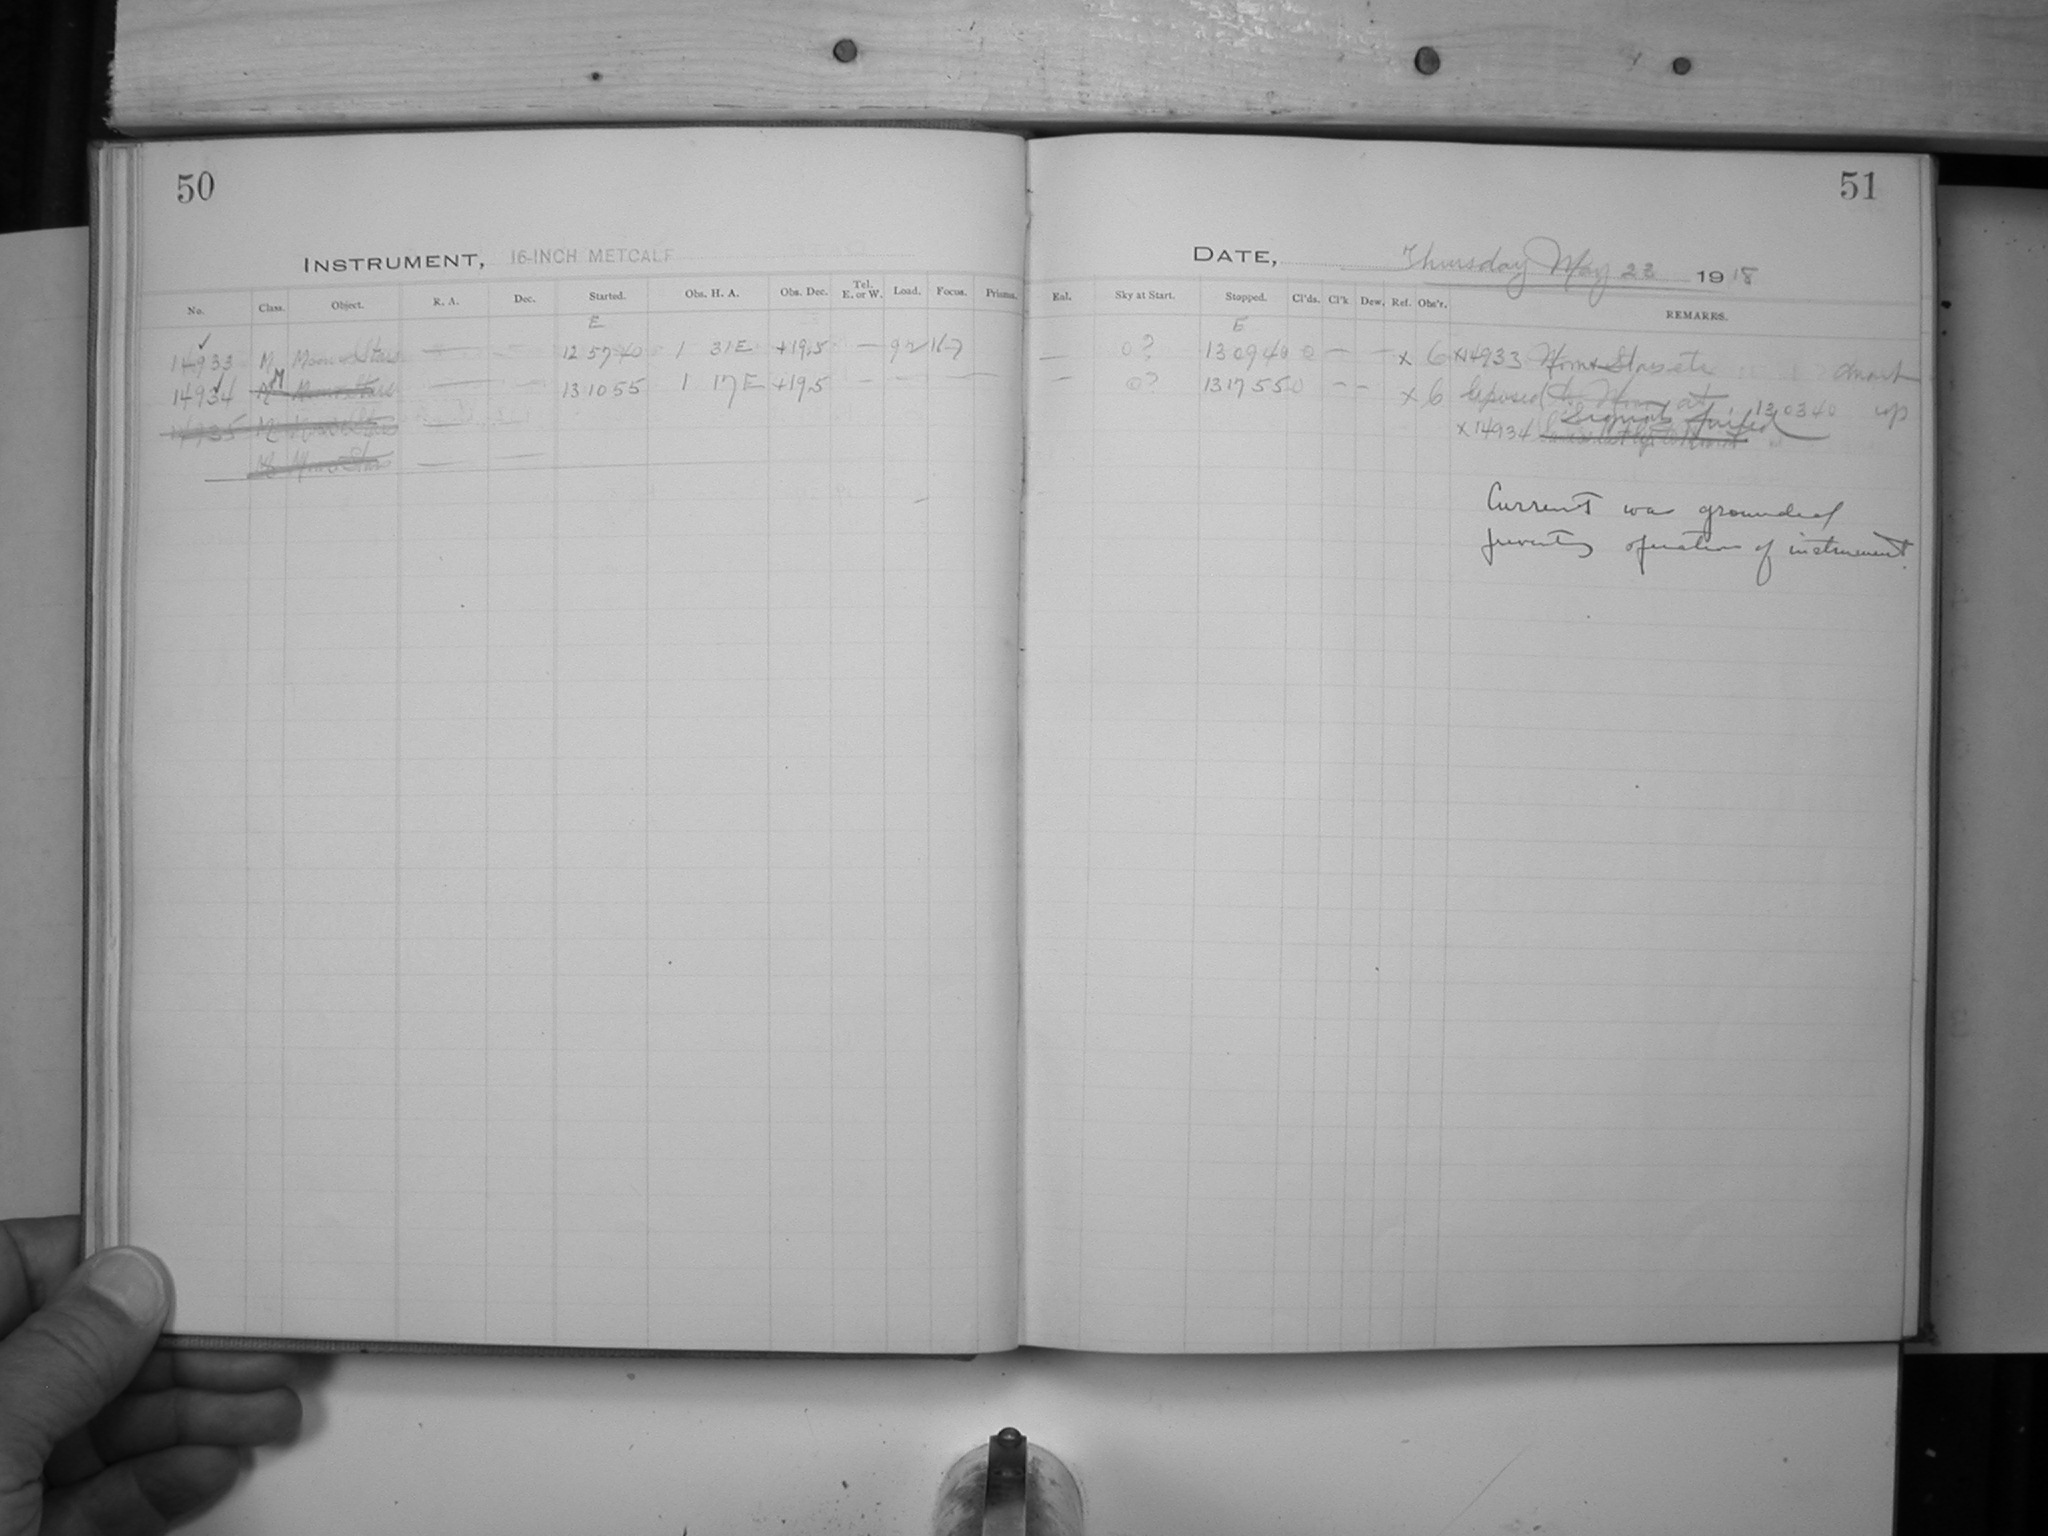 50
51
INSTRUMENT, 16-INCH METCALF
DATE, Thursday May 23 1918
No. Class. Object. R. A. Dec. Started. Obs. H. A. Obs. Dec. Tel. E. or W. Load. Focus. Prisms. Eal. Sky at Start. Stopped. Cl'ds. Cl'k Dew. Ref. Obs'r. REMARKS.
E E
14933 M Moon + Stars — — 12 57 40 1 31 E +19.5 — 92 167 — 0? 13 09 40 0 — — x 6 x14933
14934 M — — 13 10 55 1 17 E +19.5 — — — — — 0? 13 17 55 0 – – x 6 Exposed 13 03 40
Signals failed
14935 M — — x 14934
— —
Current was grounded
preventing operation of instrument.